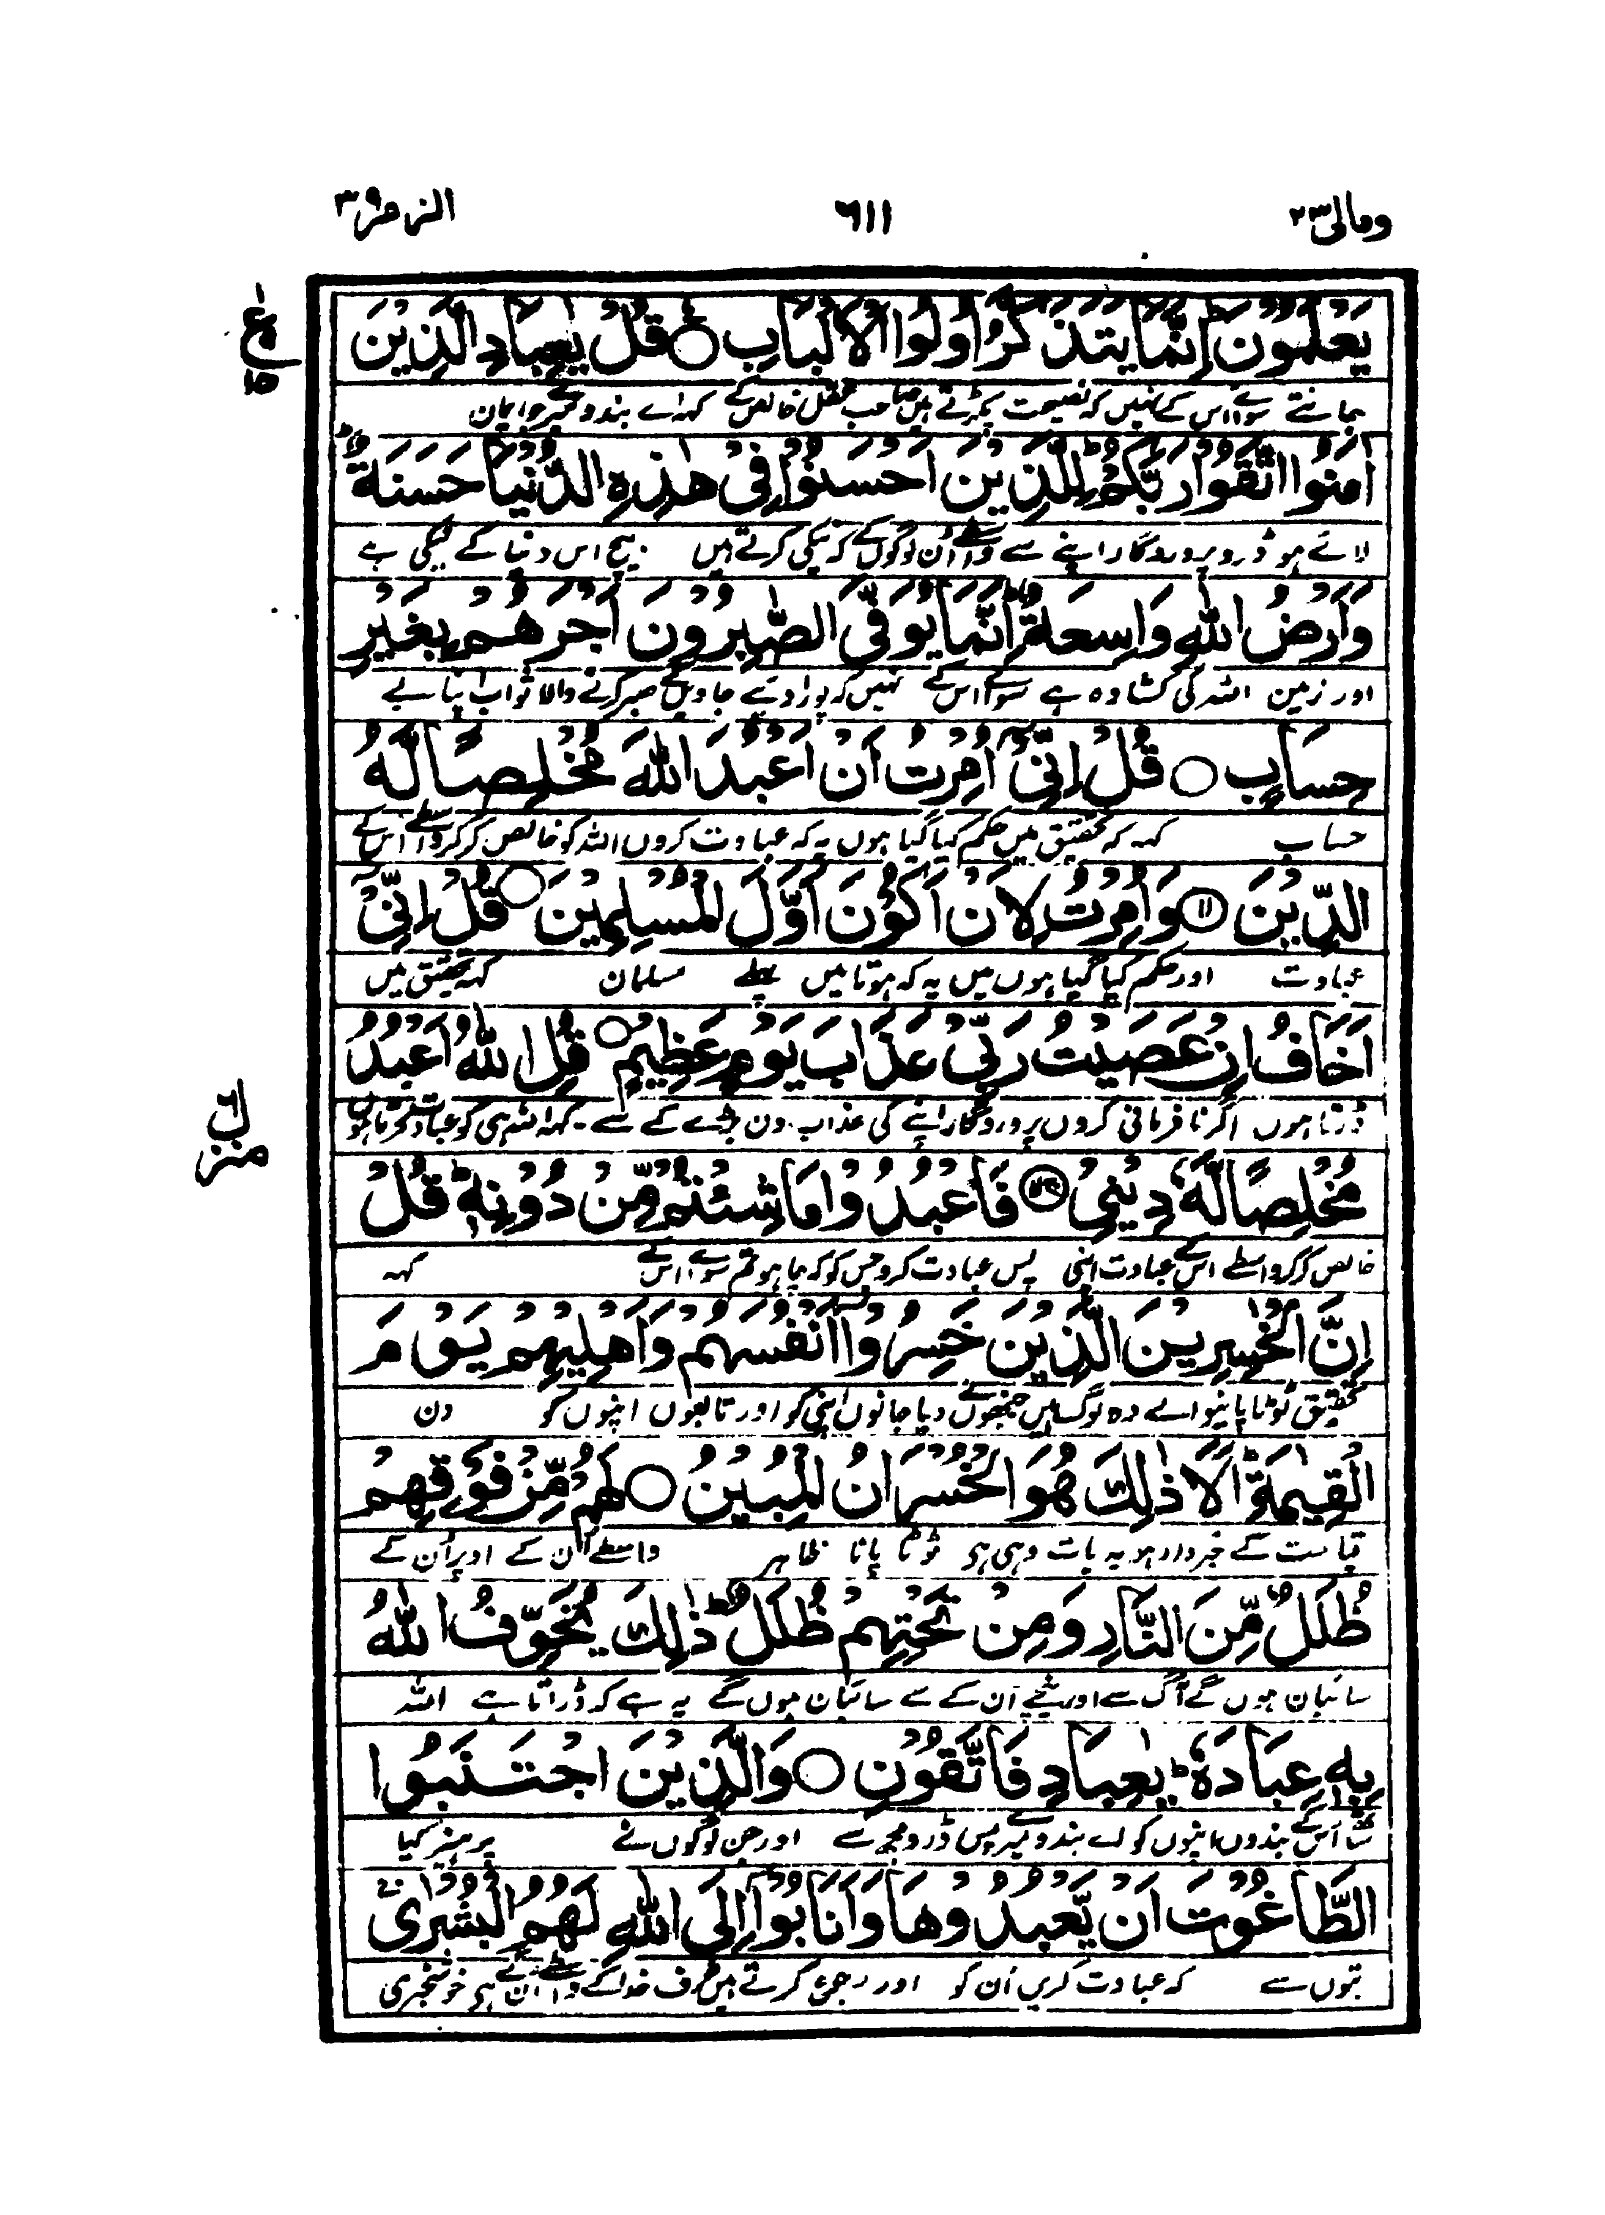 ومالی ۲۳
٦١١
الزمر ۳۹
یَعْلَمُوْنَ اِنَّمَا یَتَذَكَّرُ اُولُوا الْاَلْبَابِ ○ قُلْ یٰعِبَادِ الَّذِیْنَ
جانتے سوائے اس کے نہیں کہ نصیحت پکڑتے ہیں صاحب عقل خالص کے کہہ اے بندو میرے جو ایمان
اٰمَنُوا اتَّقُوْا رَبَّكُمْ لِلَّذِیْنَ اَحْسَنُوْا فِیْ هٰذِهِ الدُّنْیَا حَسَنَةٌ
لائے ہو ڈرو پروردگار اپنے سے واسطے اُن لوگوں کے کہ نیکی کرتے ہیں بیچ اس دنیا کے نیکی ہے
وَاَرْضُ اللّٰهِ وَاسِعَةٌ اِنَّمَا یُوَفَّی الصّٰبِرُوْنَ اَجْرَهُمْ بِغَیْرِ
اور زمین اللہ کی کشادہ ہے سوائے اس کے نہیں کہ پورا دئے جاویں گے صبر کرنے والا ثواب اپنا بے
حِسَابٍ ○ قُلْ اِنِّیْ اُمِرْتُ اَنْ اَعْبُدَ اللّٰهَ مُخْلِصًا لَّهُ
حساب کہہ کہ تحقیق میں حکم کیا گیا ہوں یہ کہ عبادت کروں اللہ کو خالص کر کر واسطے اُس کے
الدِّیْنَ ۱۱ وَاُمِرْتُ لِاَنْ اَكُوْنَ اَوَّلَ الْمُسْلِمِیْنَ ○ قُلْ اِنِّیْ
عبادت اور حکم کیا گیا ہوں میں یہ کہ ہوتا میں پہلے مسلمان کہہ تحقیق میں
اَخَافُ اِنْ عَصَیْتُ رَبِّیْ عَذَابَ یَوْمٍ عَظِیْمٍ ○ قُلِ اللّٰهَ اَعْبُدُ
ڈرتا ہوں اگر نافرمانی کروں پروردگار اپنے کی عذاب دن بڑے کے سے کہہ اللہ ہی کو عبادت کرتا ہوں
مُخْلِصًا لَّهٗ دِیْنِیْ فَاعْبُدُوْا مَا شِئْتُمْ مِّنْ دُوْنِهٖ قُلْ
خالص کر کر واسطے اُس کے عبادت اپنی پس عبادت کرو جس کو کہ چاہو تم سوائے اس کے کہہ
اِنَّ الْخٰسِرِیْنَ الَّذِیْنَ خَسِرُوْا اَنْفُسَهُمْ وَاَهْلِیْهِمْ یَوْمَ
تحقیق ٹوٹا پانیوالے وہ لوگ ہیں جنھوں نے دیا جانوں اپنی کو اور تابعوں اپنوں کو دن
الْقِیٰمَةِ اَلَا ذٰلِكَ هُوَ الْخُسْرَانُ الْمُبِیْنُ ○ لَهُمْ مِّنْ فَوْقِهِمْ
قیامت کے خبردار ہو یہ بات وہی ہی ٹوٹا پانا ظاہر واسطے اُن کے اوپر اُن کے
ظُلَلٌ مِّنَ النَّارِ وَمِنْ تَحْتِهِمْ ظُلَلٌ ذٰلِكَ یُخَوِّفُ اللّٰهُ
سائبان ہوں گے آگ سے اور نیچے اُن کے سے سائبان ہوں گے یہ ہے کہ ڈراتا ہے اللہ
بِهٖ عِبَادَهٗ یٰعِبَادِ فَاتَّقُوْنِ ○ وَالَّذِیْنَ اجْتَنَبُوا
ساتھ اُس کے بندوں اپنوں کو اے بندو میرے پس ڈرو مجھ سے اور جن لوگوں نے پرہیز کیا
الطَّاغُوْتَ اَنْ یَّعْبُدُوْهَا وَاَنَابُوْا اِلَی اللّٰهِ لَهُمُ الْبُشْرٰی
بتوں سے کہ عبادت کریں اُن کو اور رجوع کرتے ہیں طرف خدا کے واسطے اُن کے ہی خوشخبری
ع
۱۵
منزل ٦